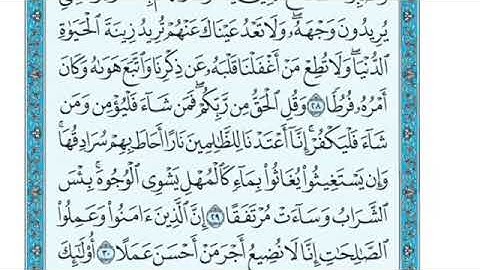 يُرِيدُونَ وَجْهَهُۥ ۖ وَلَا تَعْدُ عَيْنَاكَ عَنْهُمْ تُرِيدُ زِينَةَ ٱلْحَيَوٰةِ
ٱلدُّنْيَا ۖ وَلَا تُطِعْ مَنْ أَغْفَلْنَا قَلْبَهُۥ عَن ذِكْرِنَا وَٱتَّبَعَ هَوَىٰهُ وَكَانَ
أَمْرُهُۥ فُرُطًا ٢٨ وَقُلِ ٱلْحَقُّ مِن رَّبِّكُمْ ۖ فَمَن شَآءَ فَلْيُؤْمِن وَمَن
شَآءَ فَلْيَكْفُرْ ۚ إِنَّآ أَعْتَدْنَا لِلظَّـٰلِمِينَ نَارًا أَحَاطَ بِهِمْ سُرَادِقُهَا ۚ
وَإِن يَسْتَغِيثُوا۟ يُغَاثُوا۟ بِمَآءٍ كَٱلْمُهْلِ يَشْوِى ٱلْوُجُوهَ ۚ بِئْسَ
ٱلشَّرَابُ وَسَآءَتْ مُرْتَفَقًا ٢٩ إِنَّ ٱلَّذِينَ ءَامَنُوا۟ وَعَمِلُوا۟
ٱلصَّـٰلِحَـٰتِ إِنَّا لَا نُضِيعُ أَجْرَ مَنْ أَحْسَنَ عَمَلًا ٣٠ أُو۟لَـٰٓئِكَ